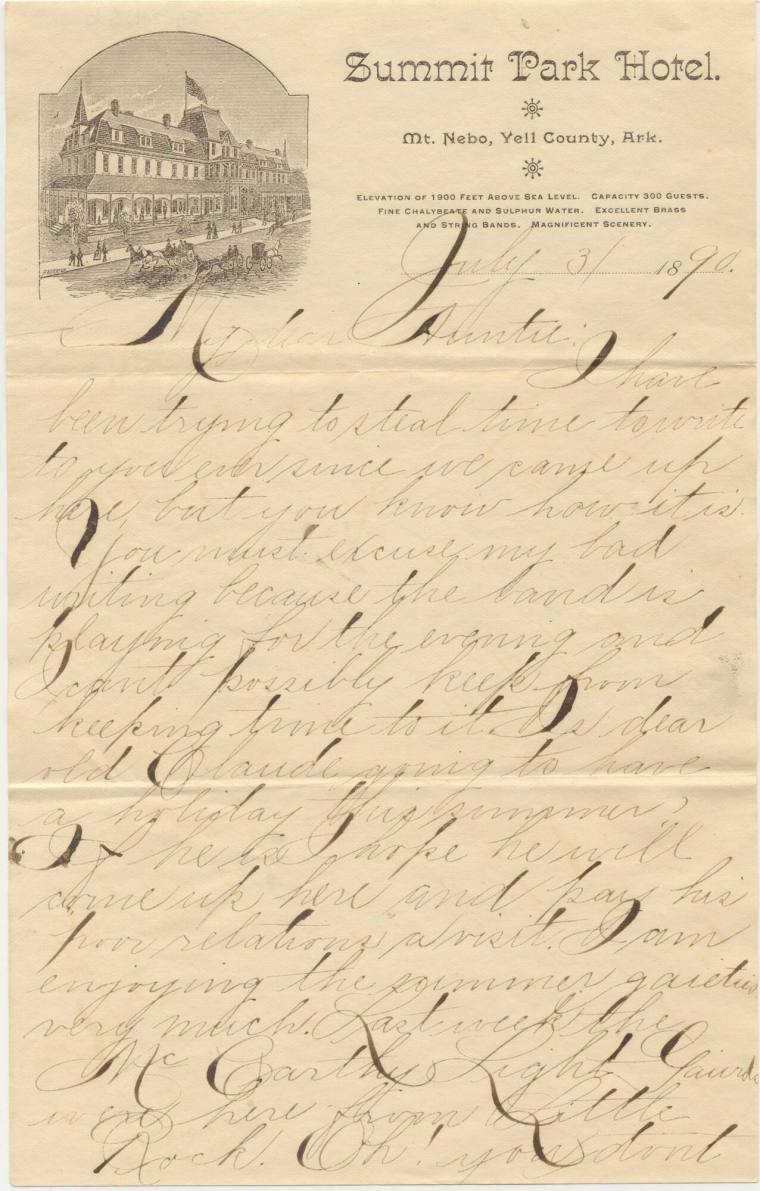 Summit Park Hotel.
Mt. Nebo, Yell County, Ark.
Elevation of 1900 Feet Above Sea Level. Capacity 300 Guests.
Fine Chalybeate and Sulphur Water. Excellent Brass
and String Bands. Magnificent Scenery.
July 31 1890.
My dear Auntie:
I have
been trying to steal time to write
to you ever since we came up
here, but you know how it is.
You must excuse my bad
writing because the band is
playing for the evening and
I can't possibly keep from
keeping time to it. Is dear
old Claude going to have
a holiday this summer?
If he is I hope he will
come up here and pay his
"poor relations" a visit. I am
enjoying the summer gaieties
very much. Last week the
McCarthy Light Guards
were here from Little
Rock. Oh! you dont